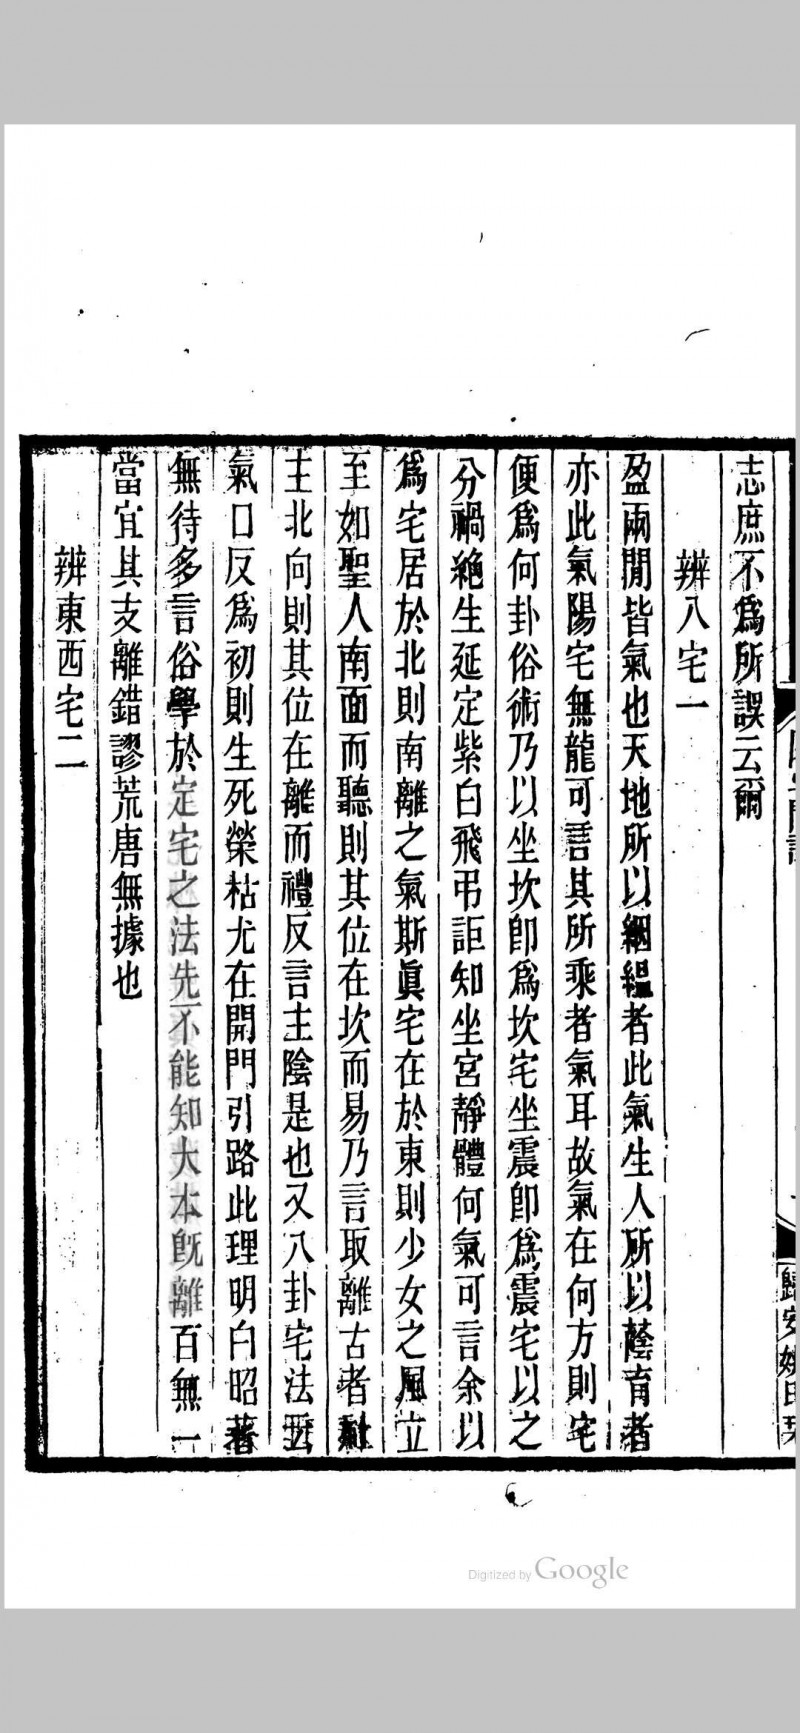 志庶不爲所誤云爾
辨八宅一
盈兩閒皆氣也天地所以絪縕者此氣生人所以蔭育者
亦此氣陽宅無龍可言其所乘者氣耳故氣在何方則宅
便爲何卦俗術乃以坐坎卽爲坎宅坐震卽爲震宅以之
分禍絶生延定紫白飛弔詎知坐宮靜體何氣可言余以
爲宅居於北則南離之氣斯眞宅在於東則少女之風立
至如聖人南面而聽則其位在坎而易乃言取離古者社
主北向則其位在離而禮反言主陰是也又八卦宅法云
氣口反爲初則生死榮枯尤在開門引路此理明白昭著
無待多言俗學於定宅之法先不能知大本旣離百無一
當宜其支離錯謬荒唐無據也
辨東西宅二
歸安姚氏
Digitized by Google